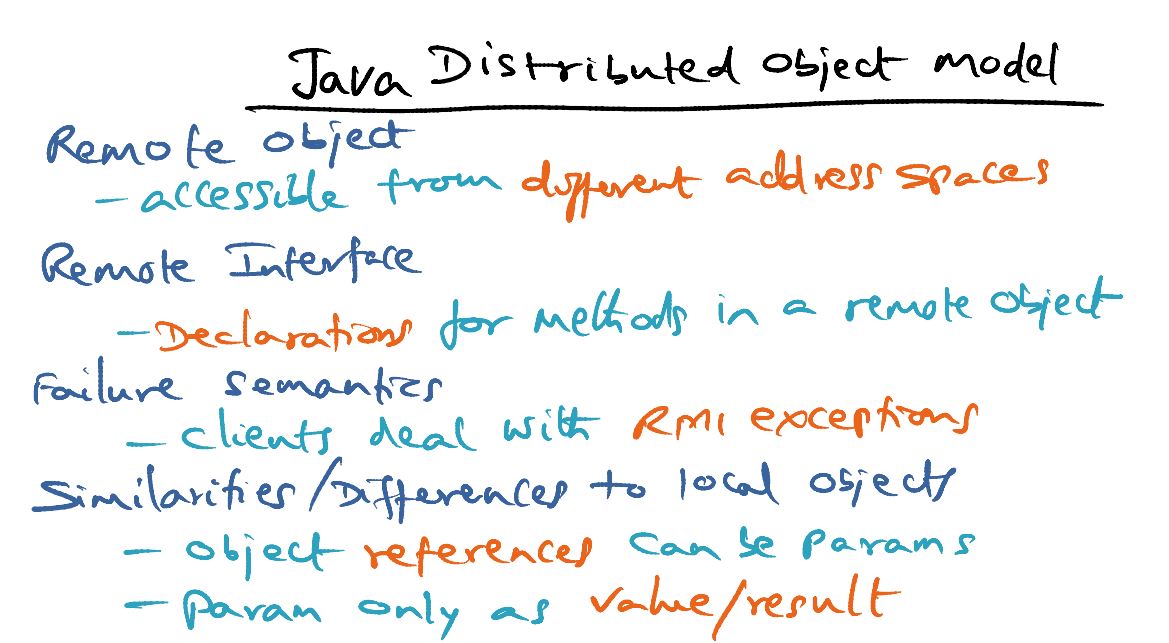 Java Distributed Object model
Remote object
- accessible from different address spaces
Remote Interface
- Declarations for methods in a remote object
Failure semantics
- clients deal with RMI exceptions
Similarities/Differences to local objects
- object references can be params
- param only as value/result